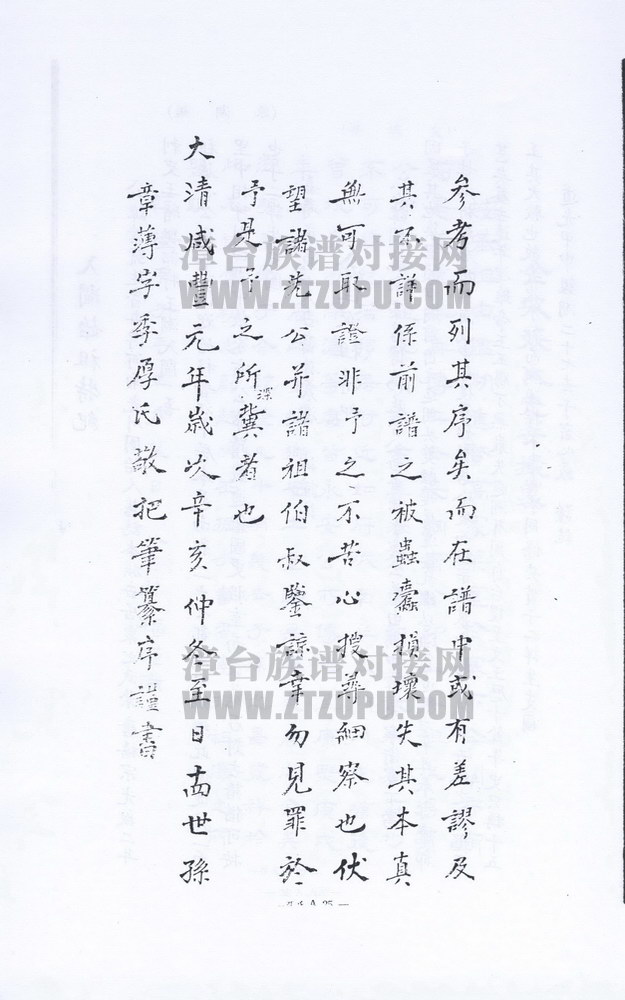 參考而列其序矣而在譜中或有差謬及
其不詳係前譜之被蟲蠹損壞失其本真
無可取證非予之不苦心搜尋細察也伏
望諸先公并諸祖伯叔鑒諒幸勿見罪於
予是予之所深冀者也
大清咸豐元年歲次辛亥仲冬至日十四世孫
章薄字季厚氏敬把筆纂序謹書
漳台族谱对接网
WWW.ZTZUPU.COM
漳台族谱对接网
WWW.ZTZUPU.COM